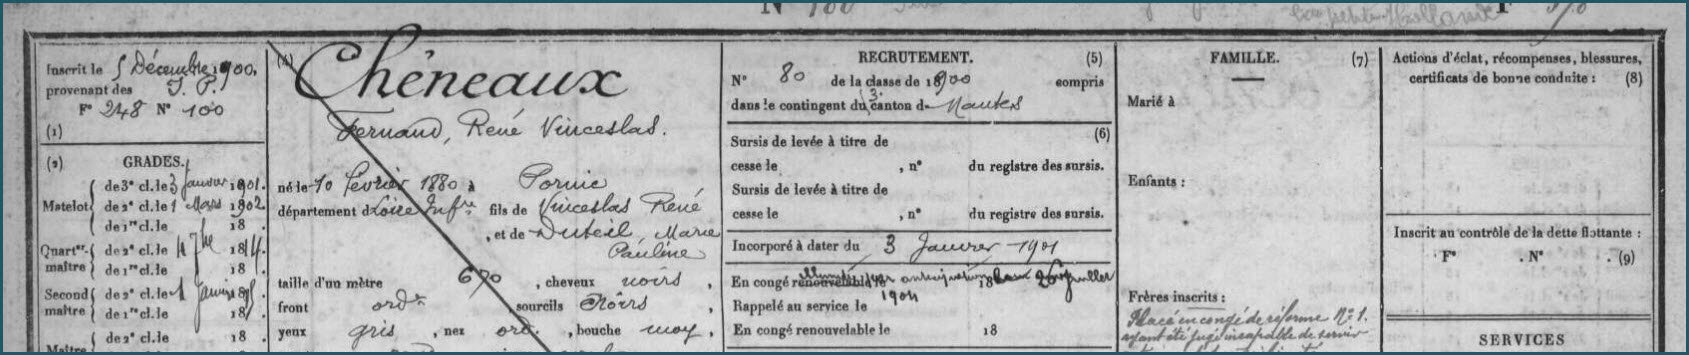 N° 100
Inscrit le 5 Décembre 1900,
provenant des I. P.
F° 248 N° 100
(1)
(2) GRADES.
Matelot de 3e cl. le 3 Janvier 1901.
de 2e cl. le 1 Mars 1902
de 1re cl. le 18 .
Quartr. maître de 2e cl. le
de 1re cl. le 18 .
Second maître de 2e cl. le 1 Janvier
de 1re cl. le 18 .
Maître de 2e cl. le 18 .
(4) Chéneaux
Fernand, René Vinceslas.
né le 10 février 1880 à Pornic
département d Loire Infre fils de Vinceslas René
, et de Duteil Marie
Pauline
taille d'un mètre 670 , cheveux noirs ,
front ordre sourcils Noirs ,
yeux gris , nez ord. , bouche moy ,
RECRUTEMENT. (5)
N° 80 de la classe de 1900 compris
dans le contingent du 3e canton de Nantes
(6)
Sursis de levée à titre de
cesse le , n° du registre des sursis.
Sursis de levée à titre de
cesse le , n° du registre des sursis.
Incorporé à dater du 3 Janvier 1901
En congé renouvelable le 18
Rappelé au service le 1904
En congé renouvelable le 18
FAMILLE. (7)
Marié à
Enfants :
Frères inscrits :
Placé in congé de réforme N° 1.
ayant été jugé incapable de servir
Actions d'éclat, récompenses, blessures,
certificats de bonne conduite : (8)
Inscrit au contrôle de la dette flottante :
F° . N° . (9)
SERVICES